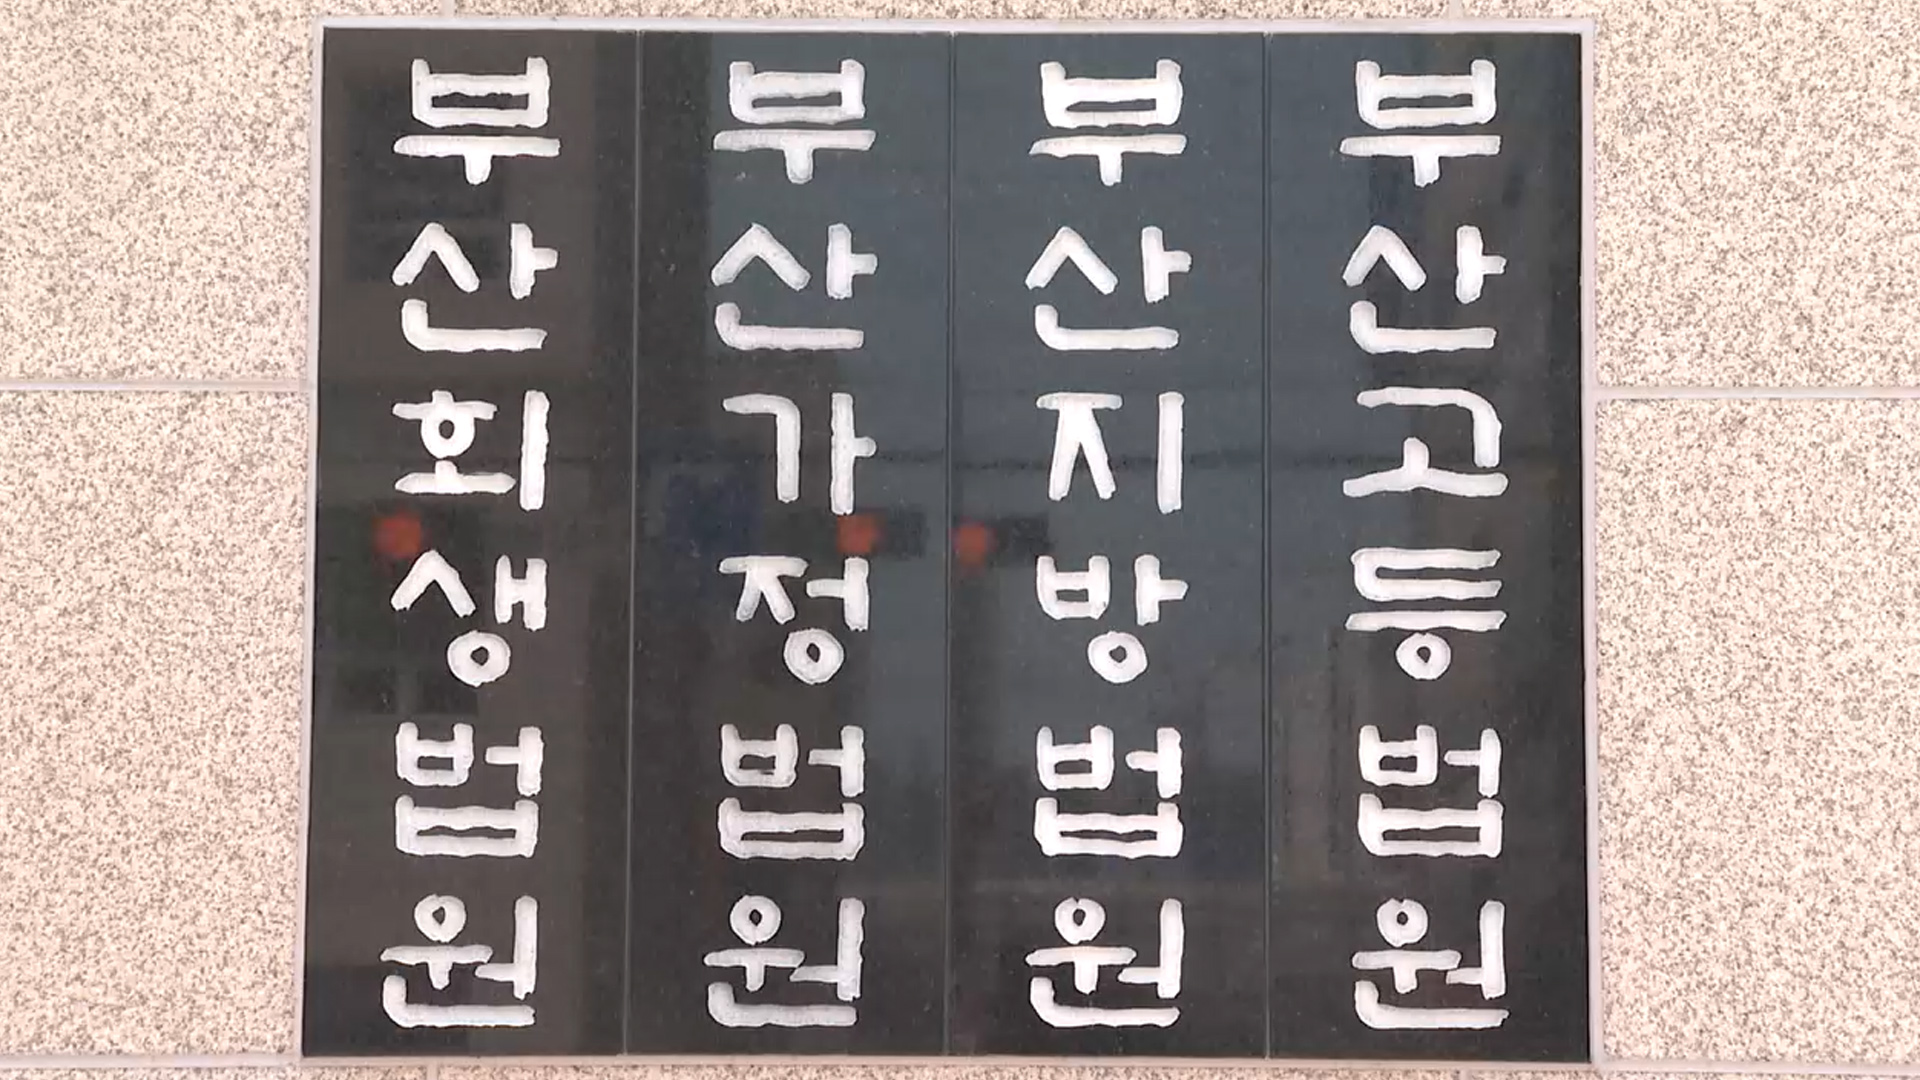 부산고등법원
부산지방법원
부산가정법원
부산회생법원